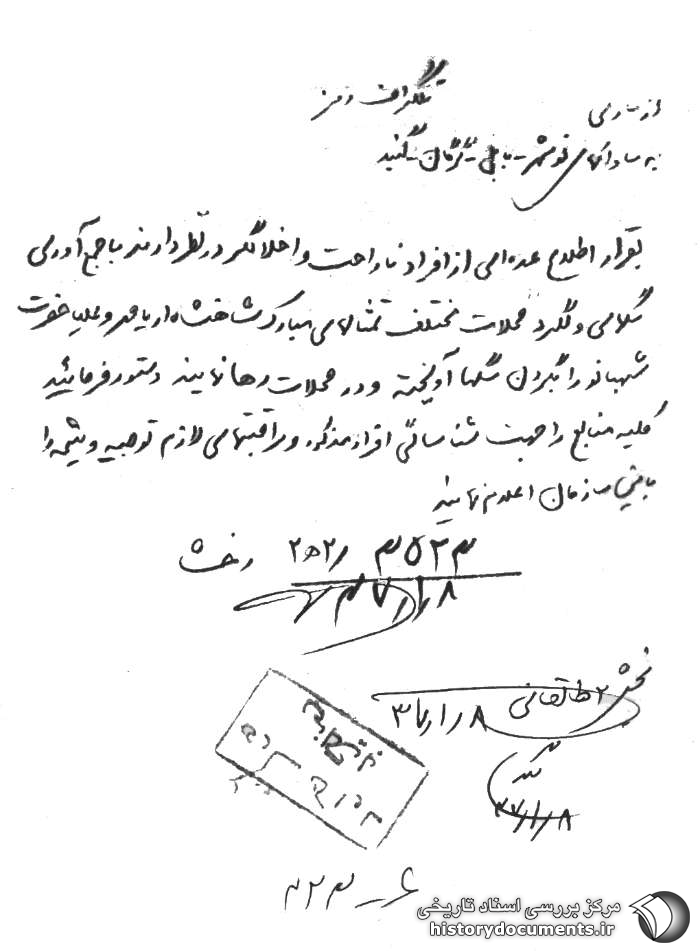 تلگراف رمز
از ساری
به ساواکهای نوشهر - بابل - گرگان - گنبد
بقرار اطلاع عده‌ای از افراد ناراحت و اخلالگر در نظر دارند با جمع‌آوری
سگهای ولگرد محلات مختلف تمثالهای مبارک شاهنشاه آریامهر و علیاحضرت
شهبانو را بگردن سگها آویخته و در محلات رها نمایند دستور فرمائید
کلیه منابع را جهت شناسائی افراد مذکور و مراقبتهای لازم توصیه و نتیجه را
باین سازمان اعلام نمایند
۳۵۲۳ /۲ه۲
۳۷/۱/۸
بخش ۲ طالقانی ۳۷/۱/۸
۳۷/۱/۸
۶ - ۳۲۳
مرکز بررسی اسناد تاریخی
historydocuments.ir